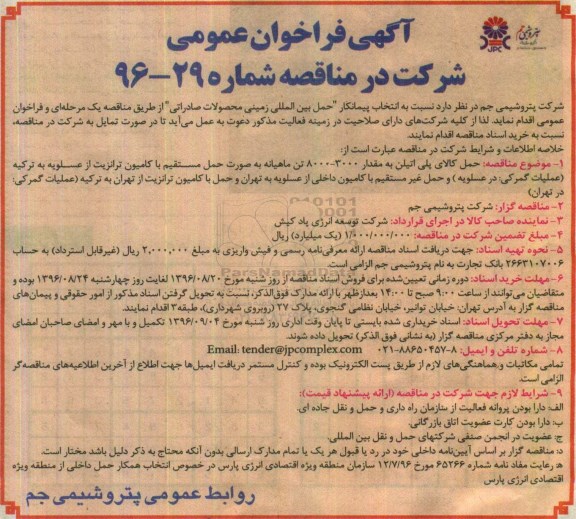 آگهی فراخوان عمومی
شرکت در مناقصه شماره ۲۹-۹۶
پتروشیمی جم
JPC
شرکت پتروشیمی جم در نظر دارد نسبت به انتخاب پیمانکار "حمل بین المللی زمینی محصولات صادراتی" از طریق مناقصه یک مرحله‌ای و فراخوان
عمومی اقدام نماید. لذا از کلیه شرکت‌های دارای صلاحیت در زمینه فعالیت مذکور دعوت به عمل می‌آید تا در صورت تمایل به شرکت در مناقصه،
نسبت به خرید اسناد مناقصه اقدام نمایند.
خلاصه اطلاعات و شرایط شرکت در مناقصه عبارت است از:
۱- موضوع مناقصه: حمل کالای پلی اتیلن به مقدار ۳۰۰۰-۸۰۰۰ تن ماهیانه به صورت حمل مستقیم با کامیون ترانزیت از عسلویه به ترکیه
(عملیات گمرکی: در عسلویه) و حمل غیر مستقیم با کامیون داخلی از عسلویه به تهران و حمل با کامیون ترانزیت از تهران به ترکیه (عملیات گمرکی:
در تهران)
۲- مناقصه گزار: شرکت پتروشیمی جم
۳- نماینده صاحب کالا در اجرای قرارداد: شرکت توسعه انرژی پاد کیش
۴- مبلغ تضمین شرکت در مناقصه: ۱/۰۰۰/۰۰۰/۰۰۰ (یک میلیارد) ریال
۵- نحوه تهیه اسناد: جهت دریافت اسناد مناقصه ارائه معرفی‌نامه رسمی و فیش واریزی به مبلغ ۲,۰۰۰,۰۰۰ ریال (غیرقابل استرداد) به حساب
۲۶۶۳۱۰۷۰۰۶ بانک تجارت به نام پتروشیمی جم الزامی است.
۶- مهلت خرید اسناد: دوره زمانی تعیین‌شده برای فروش اسناد مناقصه از روز شنبه مورخ ۱۳۹۶/۰۸/۲۰ لغایت روز چهارشنبه ۱۳۹۶/۰۸/۲۴ بوده و
متقاضیان می‌توانند از ساعت ۹:۰۰ صبح تا ۱۴:۰۰ بعدازظهر با ارائه مدارک فوق‌الذکر، نسبت به تحویل گرفتن اسناد مذکور از امور حقوقی و پیمان‌های
مناقصه گزار به آدرس تهران، خیابان توانیر، خیابان نظامی گنجوی، پلاک ۲۷ (روبروی شهرداری)، طبقه۳ اقدام نمایند.
۷- مهلت تحویل اسناد: اسناد خریداری شده بایستی تا پایان وقت اداری روز شنبه مورخ ۱۳۹۶/۰۹/۰۴ تکمیل و با مهر و امضای صاحبان امضای
مجاز به دفتر مرکزی مناقصه گزار (به نشانی فوق الذکر) تحویل داده شوند.
۸- شماره تلفن و ایمیل: ۸-۸۸۶۵۰۴۵۷-۰۲۱ Email: tender@jpcomplex.com
تمامی مکاتبات و هماهنگی‌های لازم از طریق پست الکترونیک بوده و کنترل مستمر دریافت ایمیل‌ها جهت اطلاع از آخرین اطلاعیه‌های مناقصه‌گر
الزامی است.
۹- شرایط لازم جهت شرکت در مناقصه (ارائه پیشنهاد قیمت):
الف: دارا بودن پروانه فعالیت از سازمان راه داری و حمل و نقل جاده ای.
ب: دارا بودن کارت عضویت اتاق بازرگانی.
ج: عضویت در انجمن صنفی شرکتهای حمل و نقل بین المللی.
د: مناقصه گزار بر اساس آیین‌نامه داخلی خود در رد یا قبول هر یک یا تمام مدارک ارسالی بدون آنکه محتاج به ذکر دلیل باشد مختار است.
ه: رعایت مفاد نامه شماره ۶۵۲۶۶ مورخ ۱۲/۷/۹۶ سازمان منطقه ویژه اقتصادی انرژی پارس در خصوص انتخاب همکار حمل داخلی از منطقه ویژه
اقتصادی انرژی پارس
روابط عمومی پتروشیمی جم